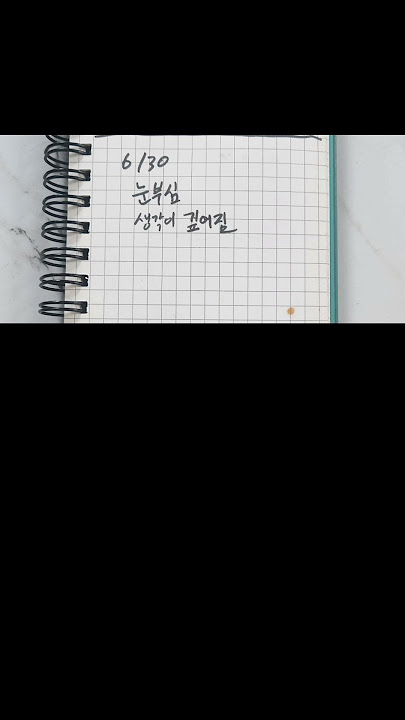 6/30
눈부심
생각이 깊어짐